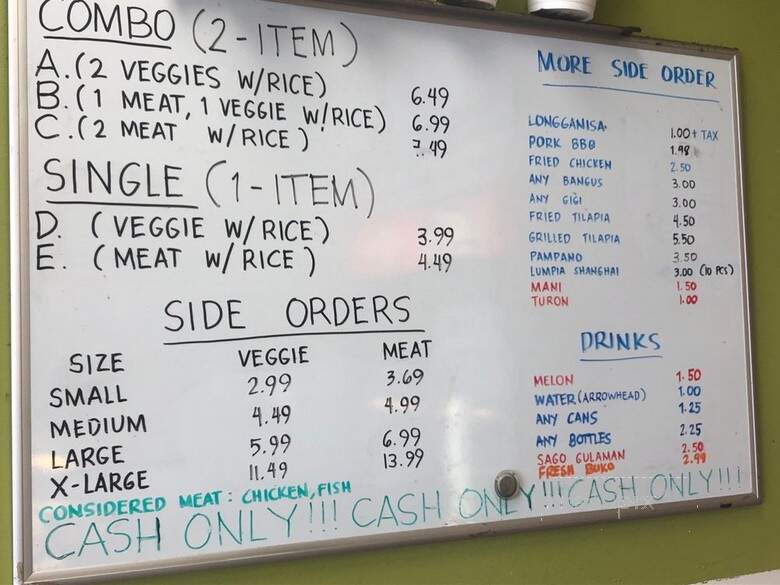 COMBO (2-ITEM)
A. (2 VEGGIES W/RICE) 6.49
B. (1 MEAT, 1 VEGGIE W/RICE) 6.99
C. (2 MEAT W/RICE) 7.49
SINGLE (1-ITEM)
D. (VEGGIE W/RICE) 3.99
E. (MEAT W/RICE) 4.49
SIDE ORDERS
SIZE VEGGIE MEAT
SMALL 2.99 3.69
MEDIUM 4.49 4.99
LARGE 5.99 6.99
X-LARGE 11.49 13.99
CONSIDERED MEAT: CHICKEN, FISH
MORE SIDE ORDER
LONGGANISA 1.00 + TAX
PORK BBQ 1.98
FRIED CHICKEN 2.50
ANY BANGUS 3.00
ANY GIGI 3.00
FRIED TILAPIA 4.50
GRILLED TILAPIA 5.50
PAMPANO 3.50
LUMPIA SHANGHAI 3.00 (10 PCS)
MANI 1.50
TURON 1.00
DRINKS
MELON 1.50
WATER (ARROWHEAD) 1.00
ANY CANS 1.25
ANY BOTTLES 2.25
SAGO GULAMAN 2.50
FRESH BUKO 2.99
CASH ONLY!!! CASH ONLY!!! CASH ONLY!!!